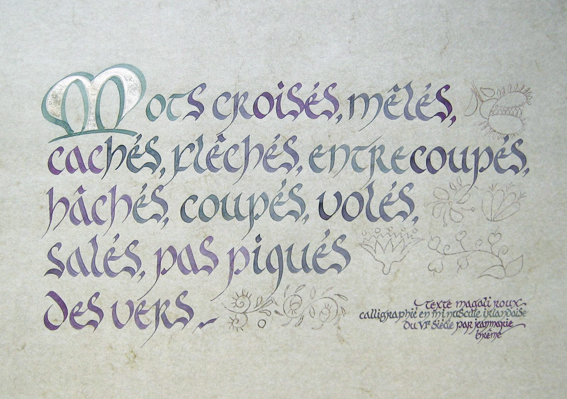 Mots croisés, mêlés,
cachés, flêchés, entrecoupés,
hâchés, coupés, volés,
salés, pas piqués
des vers
texte magali roux
calligraphie en minuscule irlandaise
du VIe siècle par jeanmarie